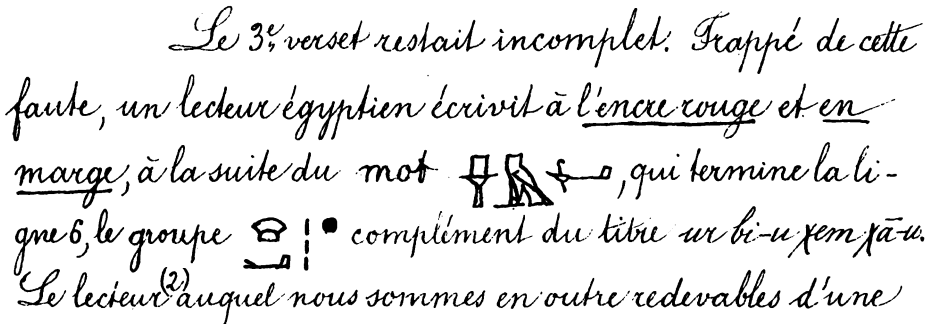 Le 3e. verset restait incomplet. Frappé de cette
faute, un lecteur égyptien écrivit à l'encre rouge et en
marge, à la suite du mot , qui termine la li-
gne 6, le groupe complément du titre ur bi-u χem χā-u.
Le lecteur (2) auquel nous sommes en outre redevables d'une